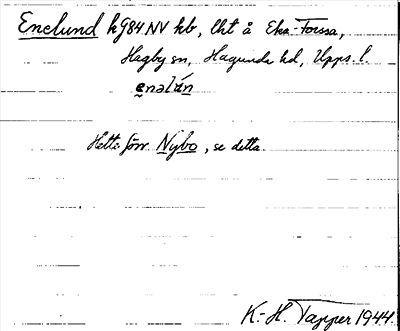 Enelund kJ84NV hb, lht å Eka-Forssa,
Hagby sn, Hagunda hd, Upps. l.
enəlán
Hette förr Nybo, se detta.
K.-H. Tapper 1944.